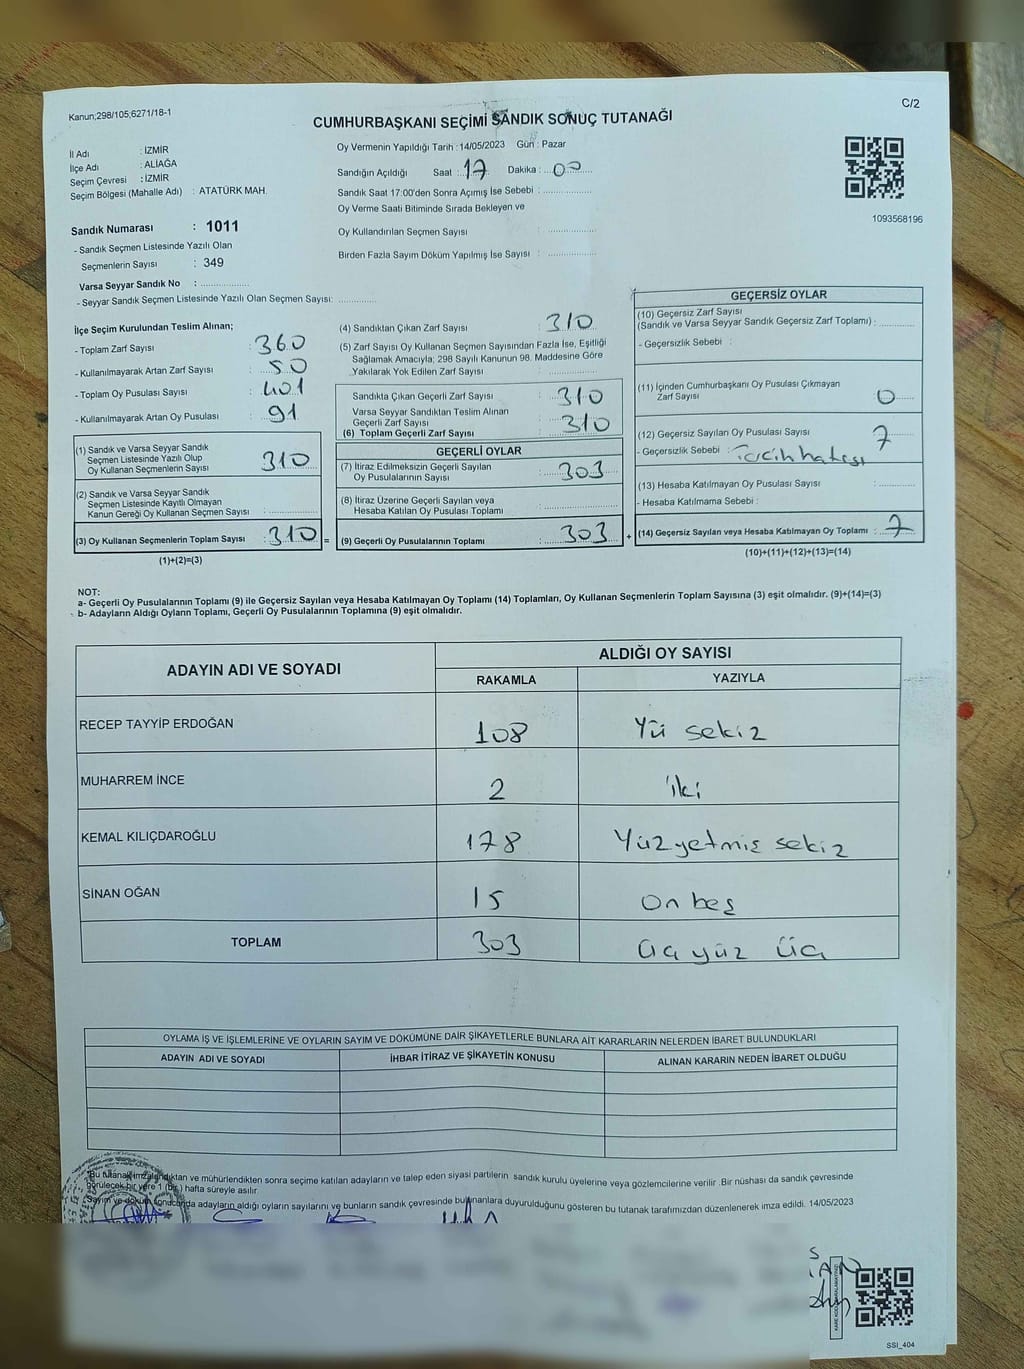 Kanun;298/105;6271/18-1
C/2
CUMHURBAŞKANI SEÇİMİ SANDIK SONUÇ TUTANAĞI
İl Adı : İZMİR
İlçe Adı : ALİAĞA
Seçim Çevresi : İZMİR
Seçim Bölgesi (Mahalle Adı) : ATATÜRK MAH.
Sandık Numarası : 1011
- Sandık Seçmen Listesinde Yazılı Olan
Seçmenlerin Sayısı : 349
Varsa Seyyar Sandık No :
- Seyyar Sandık Seçmen Listesinde Yazılı Olan Seçmen Sayısı:
Oy Vermenin Yapıldığı Tarih :14/05/2023 Gün : Pazar
Sandığın Açıldığı Saat : 17 Dakika : 00
Sandık Saat 17:00'den Sonra Açımış İse Sebebi :
Oy Verme Saati Bitiminde Sırada Bekleyen ve
Oy Kullandırılan Seçmen Sayısı :
Birden Fazla Sayım Döküm Yapılmış İse Sayısı :
1093568196
İlçe Seçim Kurulundan Teslim Alınan;
- Toplam Zarf Sayısı : 360
- Kullanılmayarak Artan Zarf Sayısı : 50
- Toplam Oy Pusulası Sayısı : 401
- Kullanılmayarak Artan Oy Pusulası : 91
(1) Sandık ve Varsa Seyyar Sandık
Seçmen Listesinde Yazılı Olup
Oy Kullanan Seçmenlerin Sayısı : 310
(2) Sandık ve Varsa Seyyar Sandık
Seçmen Listesinde Kayıtlı Olmayan
Kanun Gereği Oy Kullanan Seçmen Sayısı :
(3) Oy Kullanan Seçmenlerin Toplam Sayısı : 310 =
(1)+(2)=(3)
(4) Sandıktan Çıkan Zarf Sayısı : 310
(5) Zarf Sayısı Oy Kullanan Seçmen Sayısından Fazla İse, Eşitliği
Sağlamak Amacıyla; 298 Sayılı Kanunun 98. Maddesine Göre
Yakılarak Yok Edilen Zarf Sayısı :
Sandıkta Çıkan Geçerli Zarf Sayısı : 310
Varsa Seyyar Sandıktan Teslim Alınan
Geçerli Zarf Sayısı :
(6) Toplam Geçerli Zarf Sayısı : 310
GEÇERLİ OYLAR
(7) İtiraz Edilmeksizin Geçerli Sayılan
Oy Pusulalarının Sayısı : 303
(8) İtiraz Üzerine Geçerli Sayılan veya
Hesaba Katılan Oy Pusulası Toplamı :
(9) Geçerli Oy Pusulalarının Toplamı : 303 +
GEÇERSİZ OYLAR
(10) Geçersiz Zarf Sayısı
(Sandık ve Varsa Seyyar Sandık Geçersiz Zarf Toplamı) :
- Geçersizlik Sebebi :
(11) İçinden Cumhurbaşkanı Oy Pusulası Çıkmayan
Zarf Sayısı : 0
(12) Geçersiz Sayılan Oy Pusulası Sayısı : 7
- Geçersizlik Sebebi : Tercih hatası
(13) Hesaba Katılmayan Oy Pusulası Sayısı :
- Hesaba Katılmama Sebebi :
(14) Geçersiz Sayılan veya Hesaba Katılmayan Oy Toplamı : 7
(10)+(11)+(12)+(13)=(14)
NOT:
a- Geçerli Oy Pusulalarının Toplamı (9) ile Geçersiz Sayılan veya Hesaba Katılmayan Oy Toplamı (14) Toplamları, Oy Kullanan Seçmenlerin Toplam Sayısına (3) eşit olmalıdır. (9)+(14)=(3)
b- Adayların Aldığı Oyların Toplamı, Geçerli Oy Pusulalarının Toplamına (9) eşit olmalıdır.
ADAYIN ADI VE SOYADI ALDIĞI OY SAYISI
RAKAMLA YAZIYLA
RECEP TAYYİP ERDOĞAN 108 Yü sekiz
MUHARREM İNCE 2 iki
KEMAL KILIÇDAROĞLU 178 Yüz yetmiş sekiz
SİNAN OĞAN 15 on beş
TOPLAM 303 üç yüz üç
OYLAMA İŞ VE İŞLEMLERİNE VE OYLARIN SAYIM VE DÖKÜMÜNE DAİR ŞİKAYETLERLE BUNLARA AİT KARARLARIN NELERDEN İBARET BULUNDUKLARI
ADAYIN ADI VE SOYADI İHBAR İTİRAZ VE ŞİKAYETİN KONUSU ALINAN KARARIN NEDEN İBARET OLDUĞU
Bu tutanak imzalandıktan ve mühürlendikten sonra seçime katılan adayların ve talep eden siyasi partilerin sandık kurulu üyelerine veya gözlemcilerine verilir .Bir nüshası da sandık çevresinde
görülecek bir yere 1 (bir) hafta süreyle asılır.
Sayım ve döküm sonucunda adayların aldığı oyların sayılarını ve bunların sandık çevresinde bulunanlara duyurulduğunu gösteren bu tutanak tarafımızdan düzenlenerek imza edildi. 14/05/2023
SSI_404